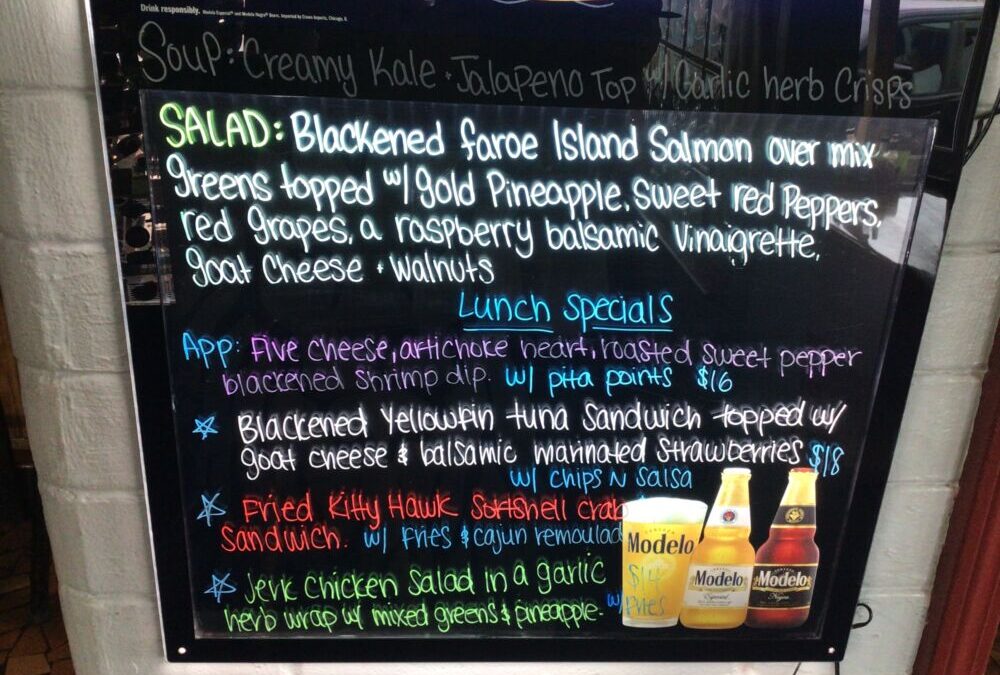 Drink responsibly. Modelo Especial® and Modelo Negra® Beers. Imported by Crown Imports, Chicago, IL
Soup: Creamy Kale + Jalapeno Top w/ Garlic herb Crisps
SALAD: Blackened faroe Island Salmon over mix
greens topped w/ gold Pineapple, Sweet red Peppers,
red grapes, a raspberry balsamic vinaigrette,
goat cheese + walnuts
Lunch Specials
App: Five cheese, artichoke heart, roasted sweet pepper
blackened shrimp dip. w/ pita points $16
Blackened Yellowfin tuna Sandwich topped w/
goat cheese & balsamic marinated Strawberries $18
w/ chips N Salsa
Fried Kitty Hawk Softshell Crab
Sandwich. w/ Fries & cajun remoulad
Jerk Chicken Salad in a garlic $14
herb wrap w/ mixed greens & pineapple- w/ Fries
Modelo
Modelo
Especial
Modelo
Negra